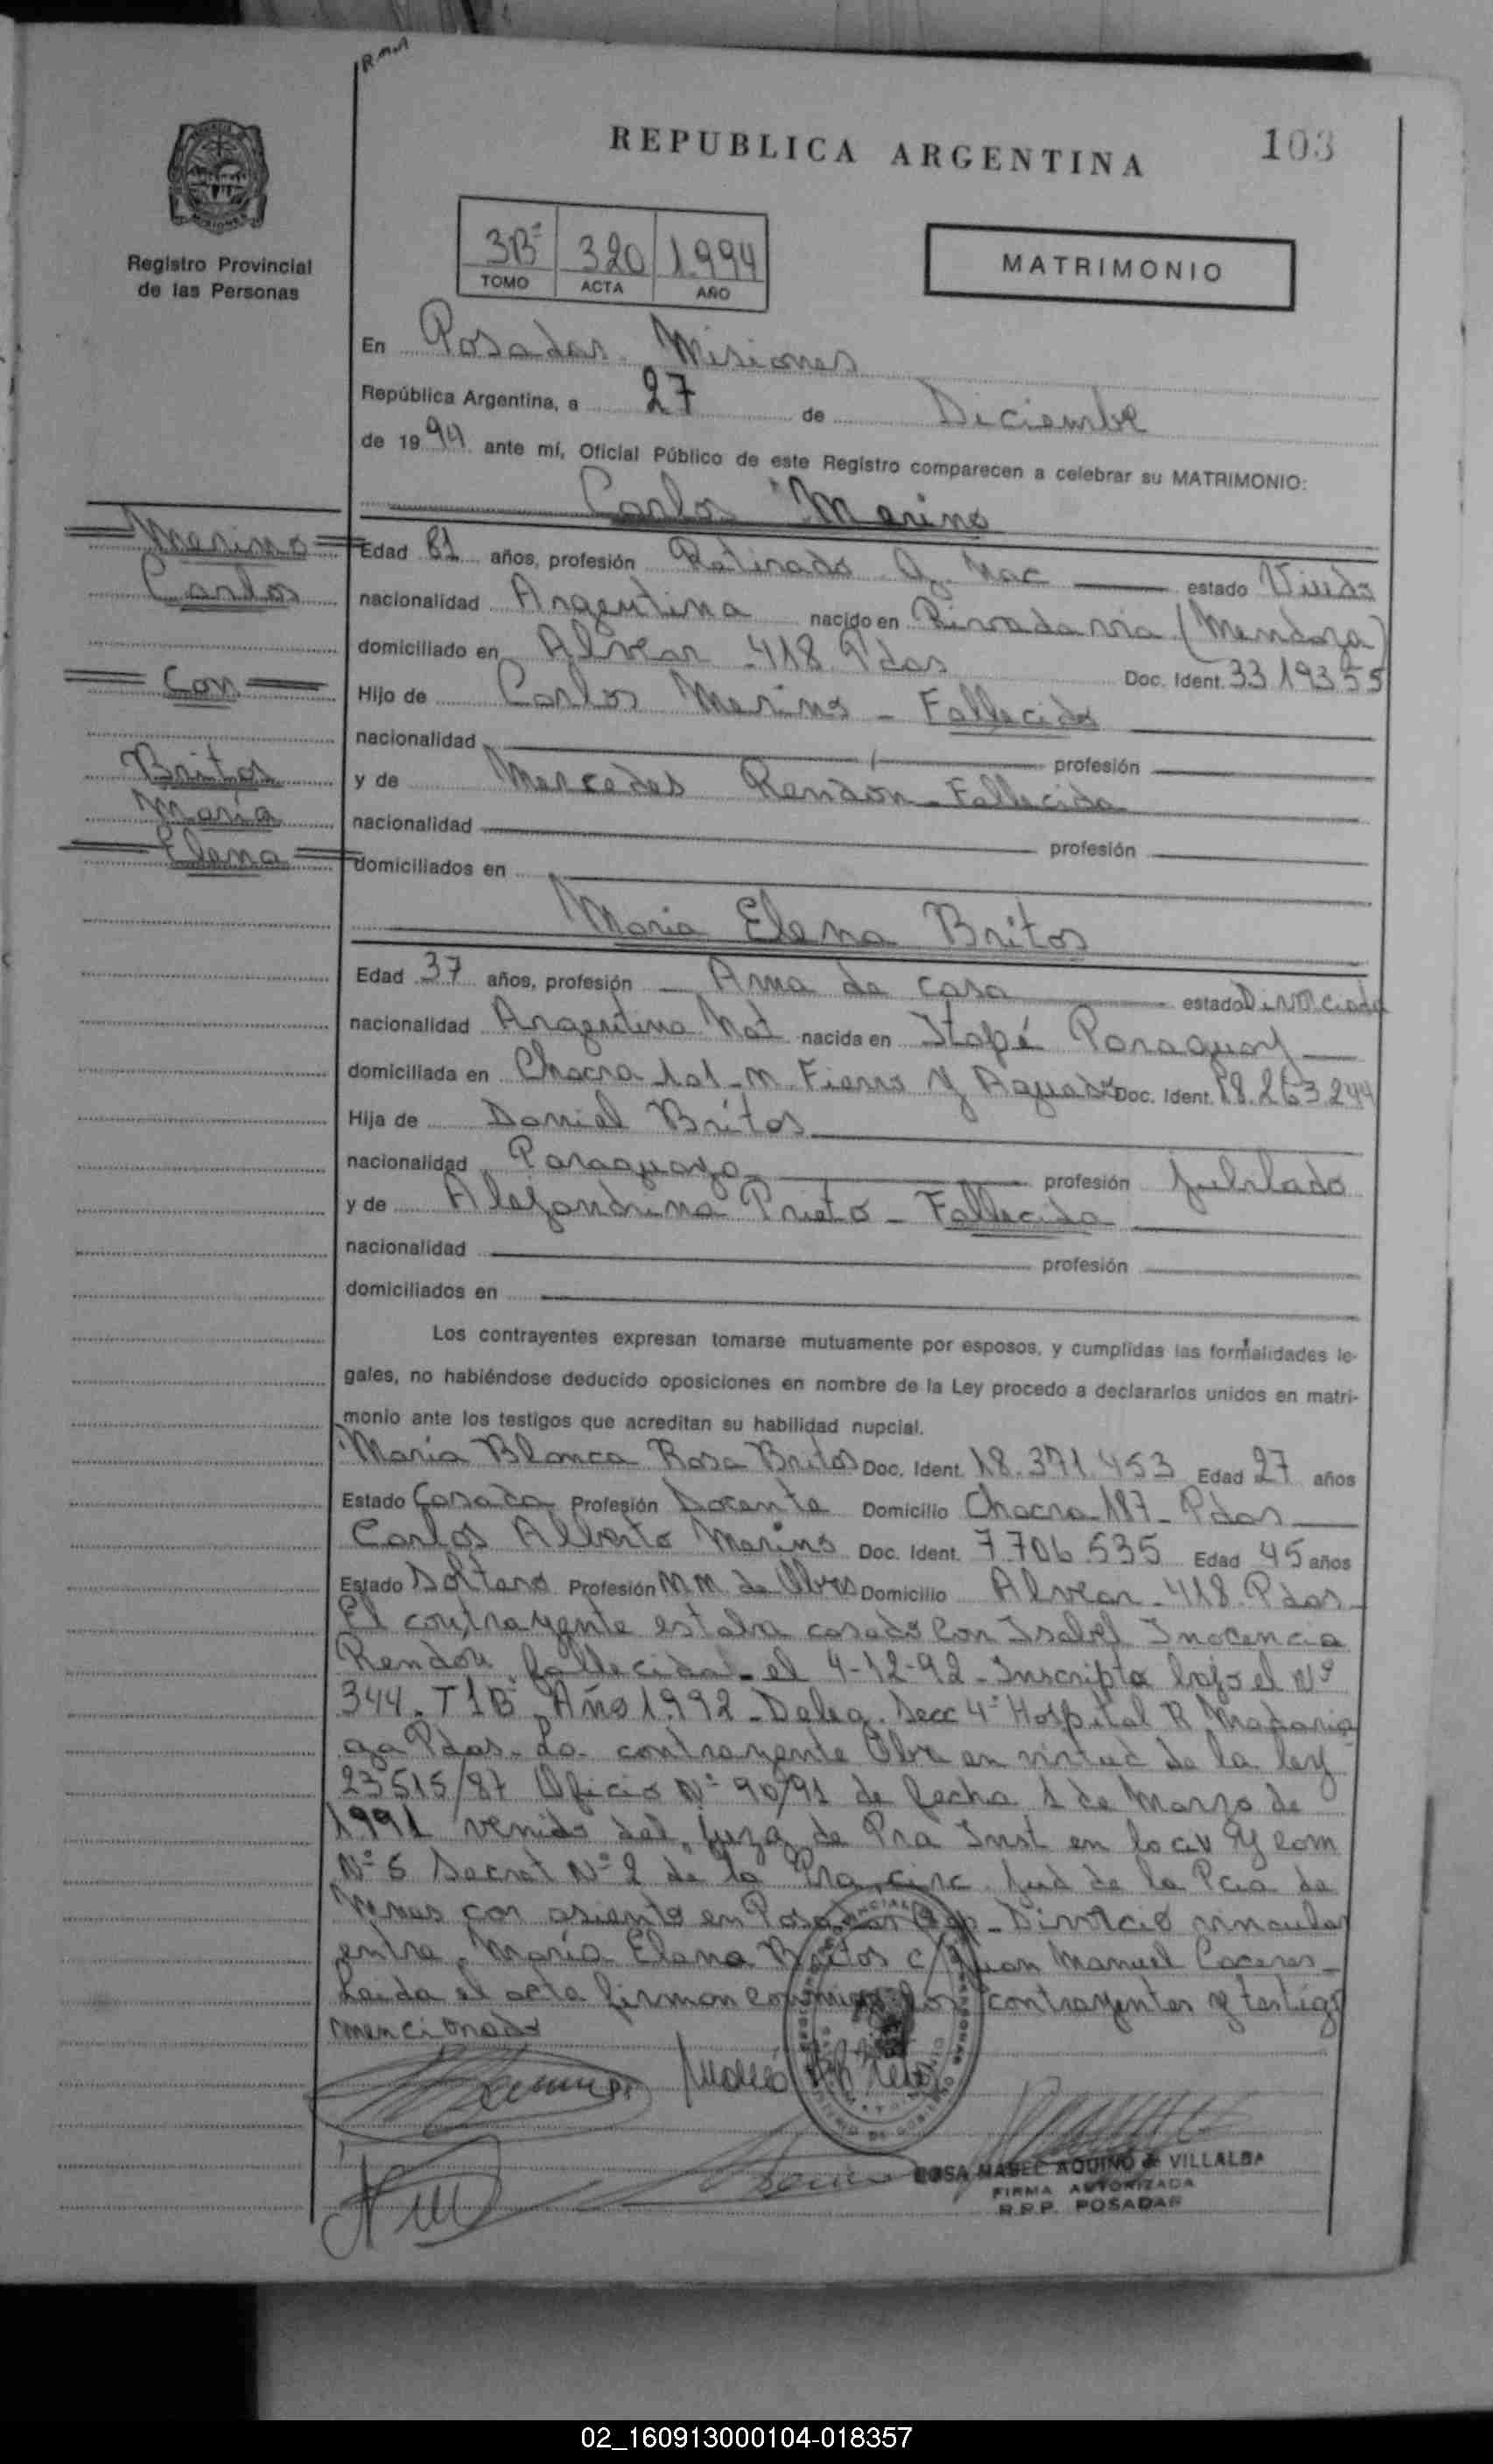 REPUBLICA ARGENTINA
103
3B
320
1994
TOMO
ACTA
AÑO
MATRIMONIO
Registro Provincial
de las Personas
En Posadas Misiones
República Argentina, a 27 de Diciembre
de 1994 ante mí, Oficial Público de este Registro comparecen a celebrar su MATRIMONIO:
Carlos Merino
Merino
Carlos
Con
Britos
María
Elena
Edad 81 años, profesión Retirado G. Nac estado Viudo
nacionalidad Argentina nacido en Rivadavia (Mendoza)
domiciliado en Alvear 418 Pdas Doc. Ident. 3319355
Hijo de Carlos Merino - Fallecido
nacionalidad profesión
y de Mercedes Rendon - Fallecida
nacionalidad profesión
domiciliados en
Maria Elena Britos
Edad 37 años, profesión Ama de casa estado Divorciada
nacionalidad Argentina Nat nacida en Itapé Paraguay
domiciliada en Chacra 101 - M. Fierro y Aguado Doc. Ident. 18.263.244
Hija de Daniel Britos
nacionalidad Paraguayo profesión Jubilado
y de Alejandrina Prieto - Fallecida
nacionalidad profesión
domiciliados en
Los contrayentes expresan tomarse mutuamente por esposos, y cumplidas las formalidades le-
gales, no habiéndose deducido oposiciones en nombre de la Ley procedo a declararlos unidos en matri-
monio ante los testigos que acreditan su habilidad nupcial.
María Blanca Rosa Britos Doc. Ident. 18.371.453 Edad 27 años
Estado Casada Profesión Docente Domicilio Chacra 187 - Pdas
Carlos Alberto Merino Doc. Ident. 7.706.535 Edad 45 años
Estado Soltero Profesión M.M. de Obras Domicilio Alvear - 418. Pdas
El contrayente estaba casado con Isabel Inocencia
Rendon fallecida - el 4-12-92 - Inscripta bajo el Nº
344. T 1B Año 1992 - Deleg. Secc 4ª Hospital R Madaria
ga Pdas. La contrayente Obra en virtud de la ley
23515/87 Oficio Nº 90/91 de fecha 1 de Marzo de
1991 venido del Juzg de Pra Inst en lo civ y com
Nº 5 Secret Nº 2 de la Pra circ Jud de la Pcia de
Mnes con asiento en Posadas - Divorcio vincular
entre María Elena Britos c/ Juan Manuel Caceres -
Leida el acta firman conmigo los contrayentes y testigos
mencionados
ROSA MABEL AQUINO de VILLALBA
FIRMA AUTORIZADA
R.P.P. POSADAS
02_160913000104-018357